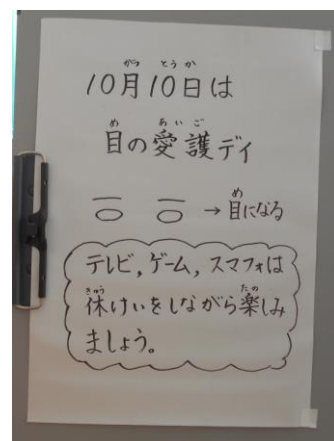 10月10日は
目の愛護デイ
一〇 一〇 → 目になる
テレビ, ゲーム, スマフォは
休けいをしながら楽しみ
ましょう。